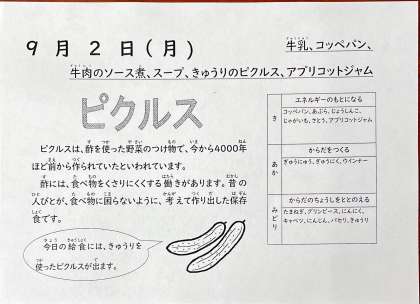 9月2日(月)
牛乳、コッペパン、
牛肉のソース煮、スープ、きゅうりのピクルス、アプリコットジャム
ピクルス
ピクルスは、酢を使った野菜のつけ物で、今から4000年
ほど前から作られていたといわれています。
酢には、食べ物をくさりにくくする働きがあります。昔の
人びとが、食べ物に困らないように、考えて作り出した保存
食です。
今日の給食には、きゅうりを
使ったピクルスが出ます。
き
エネルギーのもとになる
コッペパン、あぶら、じょうしんこ、
じゃがいも、さとう、アプリコットジャム
あか
からだをつくる
ぎゅうにゅう、ぎゅうにく、ウインナー
みどり
からだのちょうしをととのえる
たまねぎ、グリンピース、にんにく、
キャベツ、にんじん、パセリ、きゅうり